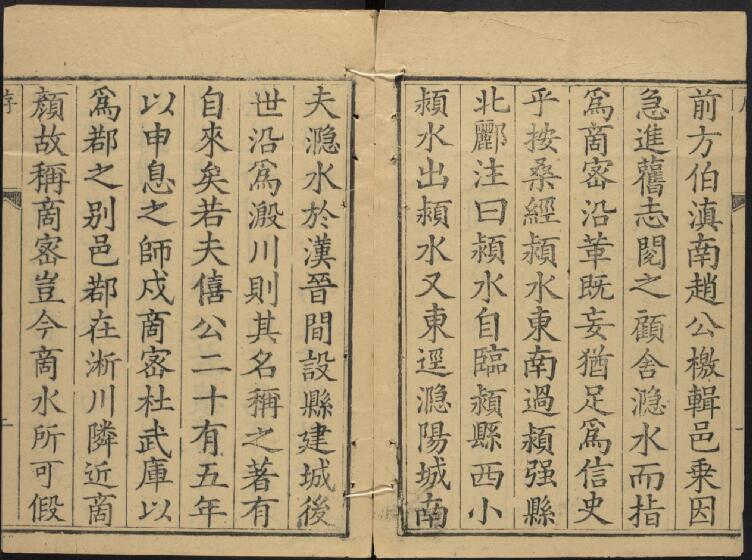 前方伯滇南趙公檄輯邑乗因
急進舊志閱之顧舍㶏水而指
爲商密沿革既妄猶足爲信史
乎按桑經潁水東南過潁强縣
北酈注曰潁水自臨潁縣西小
㶏水出潁水又東逕㶏陽城南
夫㶏水於漢晉間設縣建城後
世沿爲溵川則其名稱之著有
自來矣若夫僖公二十有五年
以申息之師戍商密杜武庫以
爲鄀之别邑鄀在淅川隣近商
顏故稱商密豈今商水所可假
序